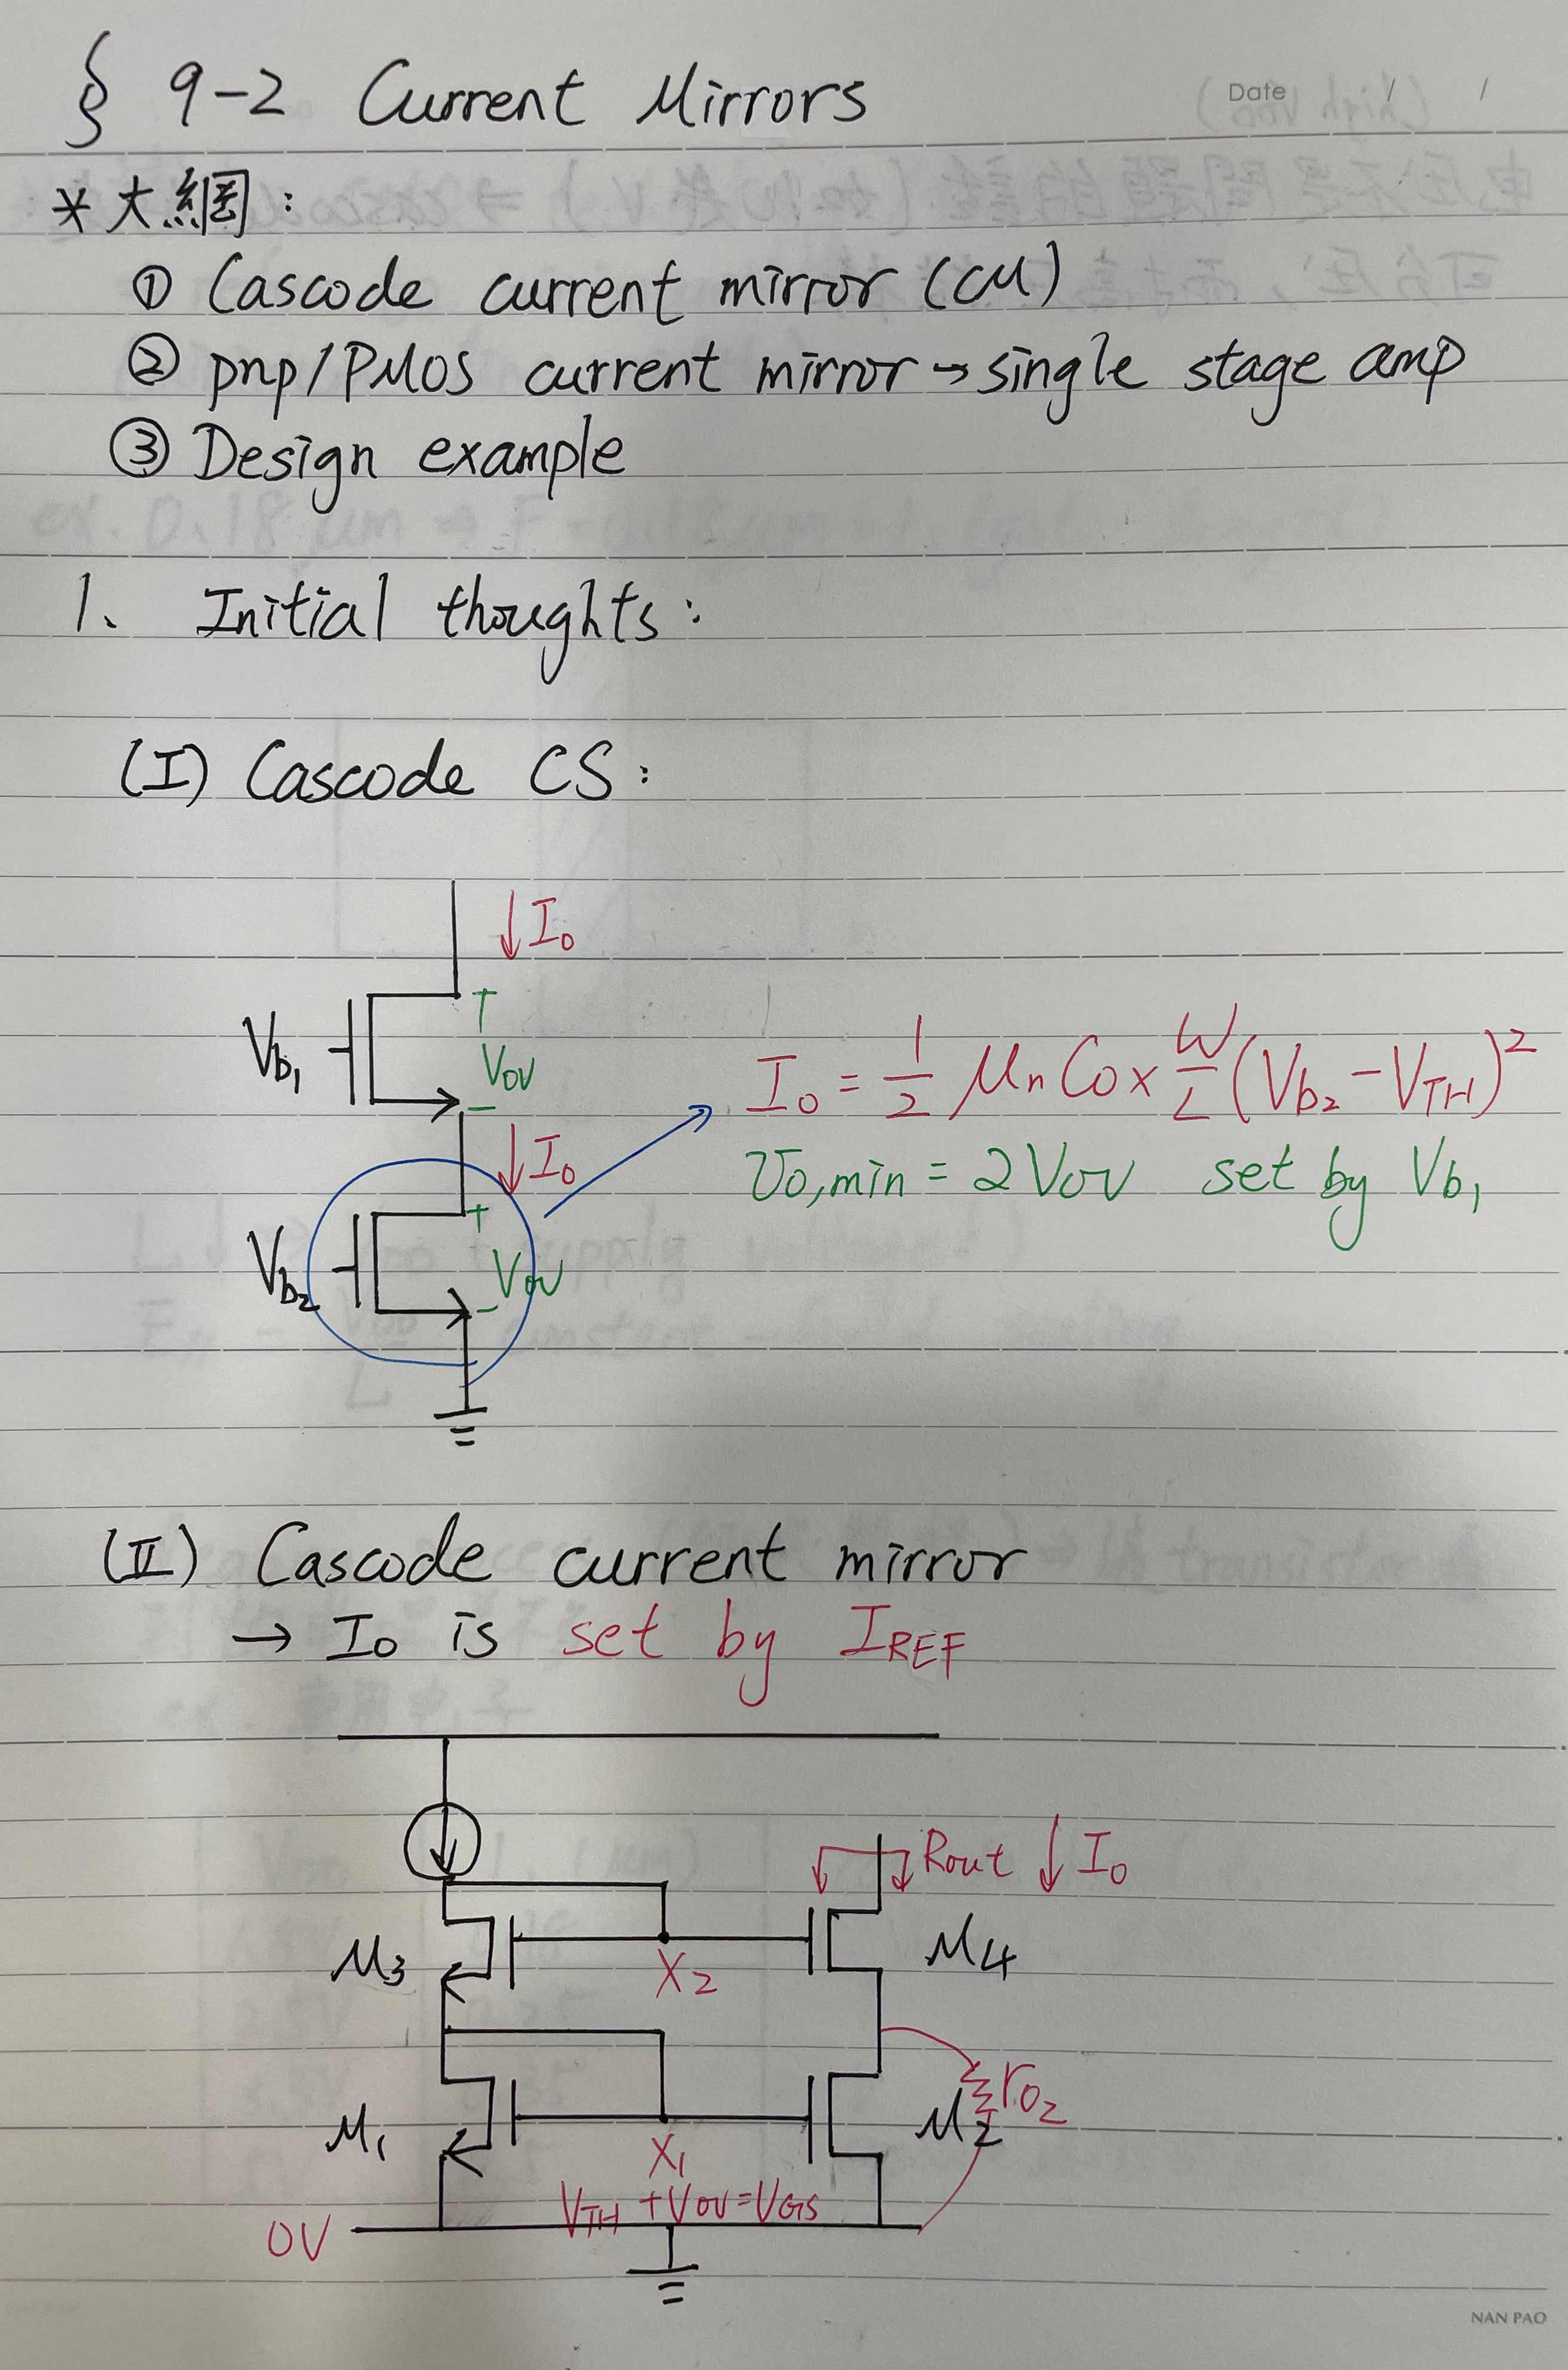 § 9-2 Current Mirrors
Date / /
* 大綱 :
① Cascode current mirror (CM)
② pnp/PMOS current mirror → single stage amp
③ Design example
1. Initial thoughts :
(I) Cascode CS :
↓ I₀
+
Vb₁
VOV
-
I₀ = 1/2 μn Cox W/L (Vb₂ - VTH)²
↓ I₀
υo,min = 2VOV set by Vb₁
+
Vb₂
VOV
-
(II) Cascode current mirror
→ I₀ is set by IREF
Rout ↓ I₀
M3
X2
M4
M1
X1
M2
ro2
VTH + VOV = VGS
0V
NAN PAO